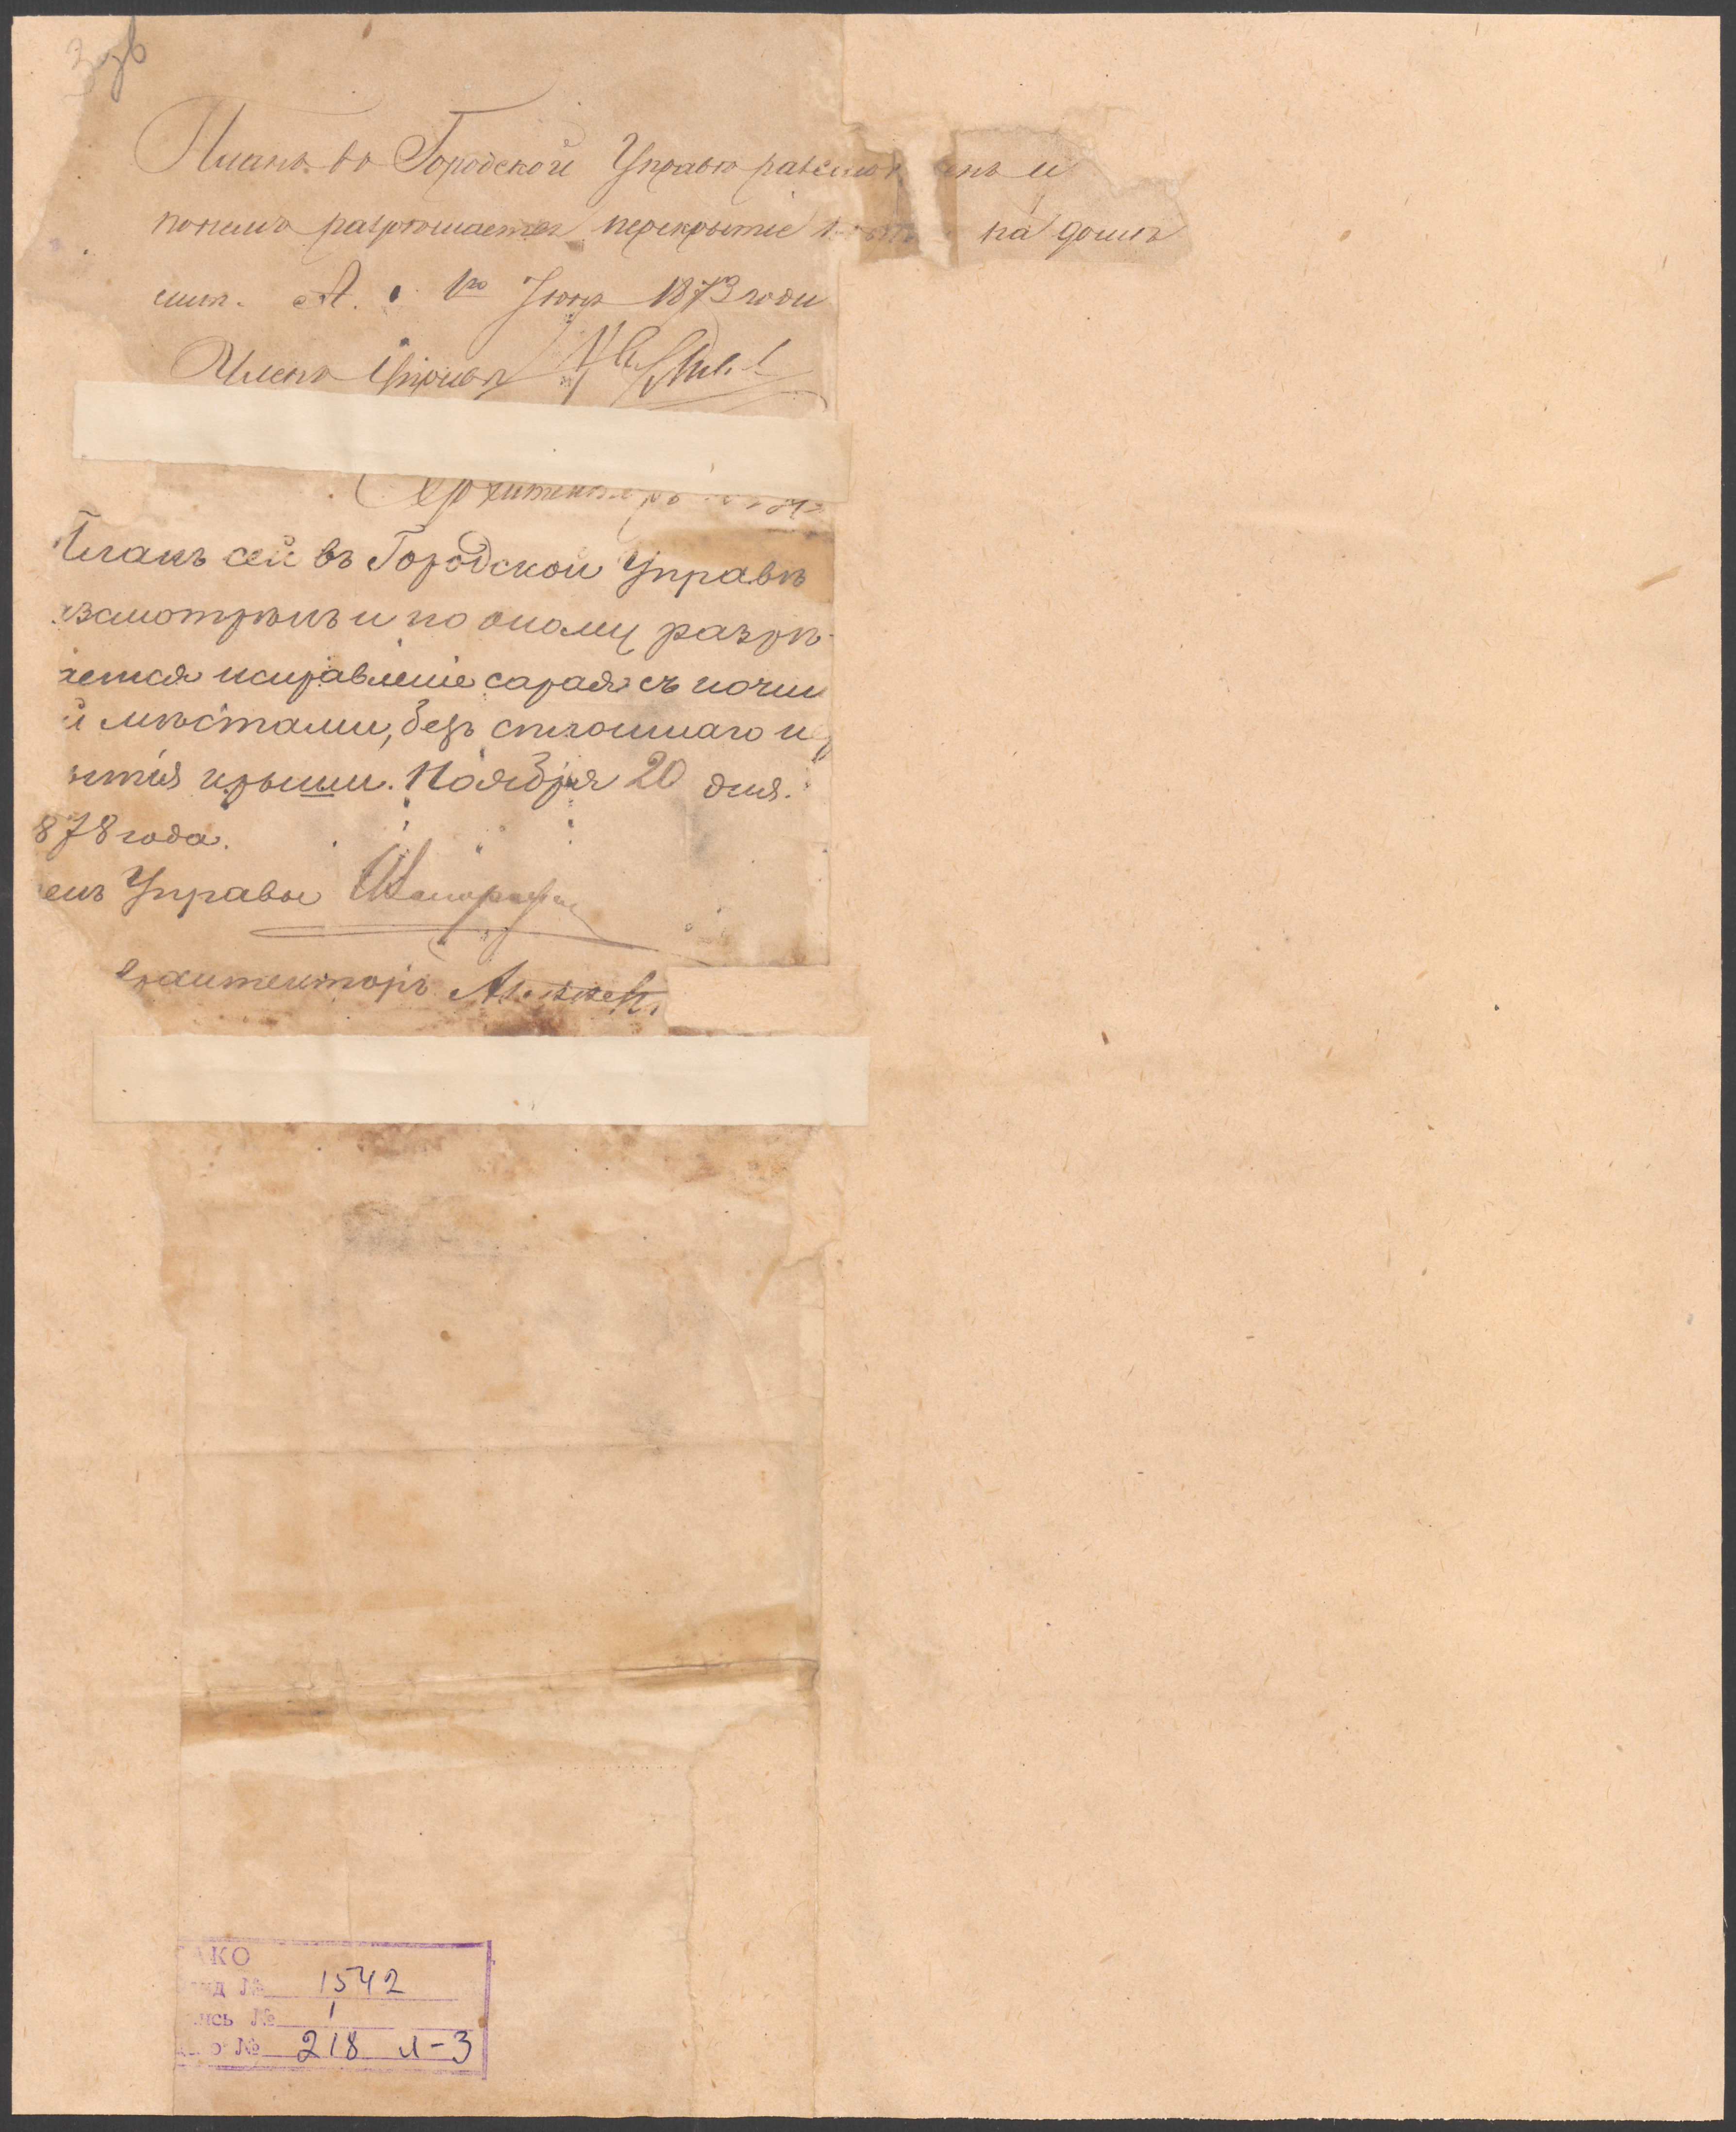 3 об
Планъ въ Городской Управѣ разсмотрѣнъ и
по нему разрѣшается перекрытіе на домѣ
лит. А. 1го Іюня 1873 года
Членъ Управы
Архитекторъ
Планъ сей въ Городской Управѣ
азсмотрѣнъ и по оному разрѣ-
ается исправленіе сарая съ почин
й мѣстами, безъ сплошнаго пе
ытія крыши. Ноября 20 дня.
878 года.
енъ Управы
Архитекторъ
ГАКО
онд № 1542
пись № 1
дело № 218 л-3